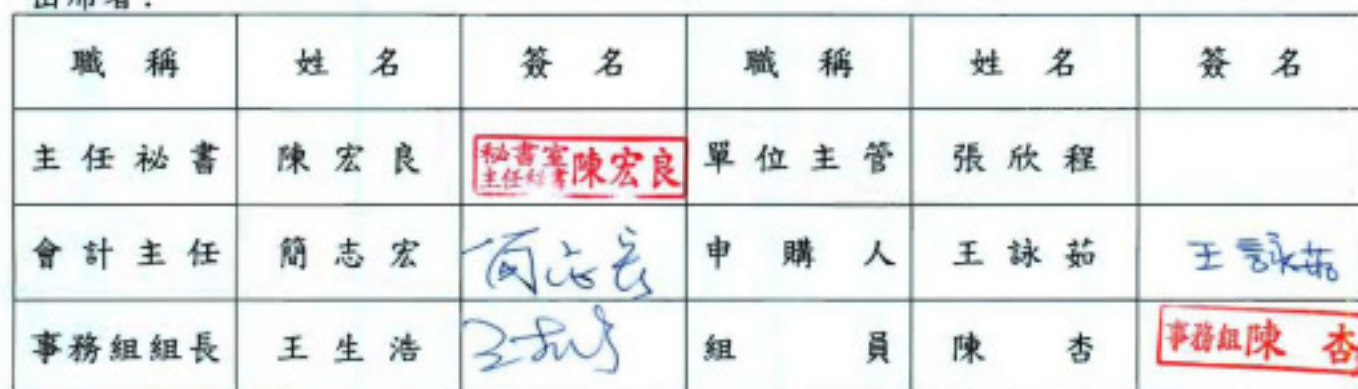 出席者：
職稱 姓名 簽名 職稱 姓名 簽名
主任秘書 陳宏良 秘書室主任秘書陳宏良 單位主管 張欣程
會計主任 簡志宏 簡志宏 申購人 王詠茹 王詠茹
事務組組長 王生浩 組員 陳杏 事務組陳杏